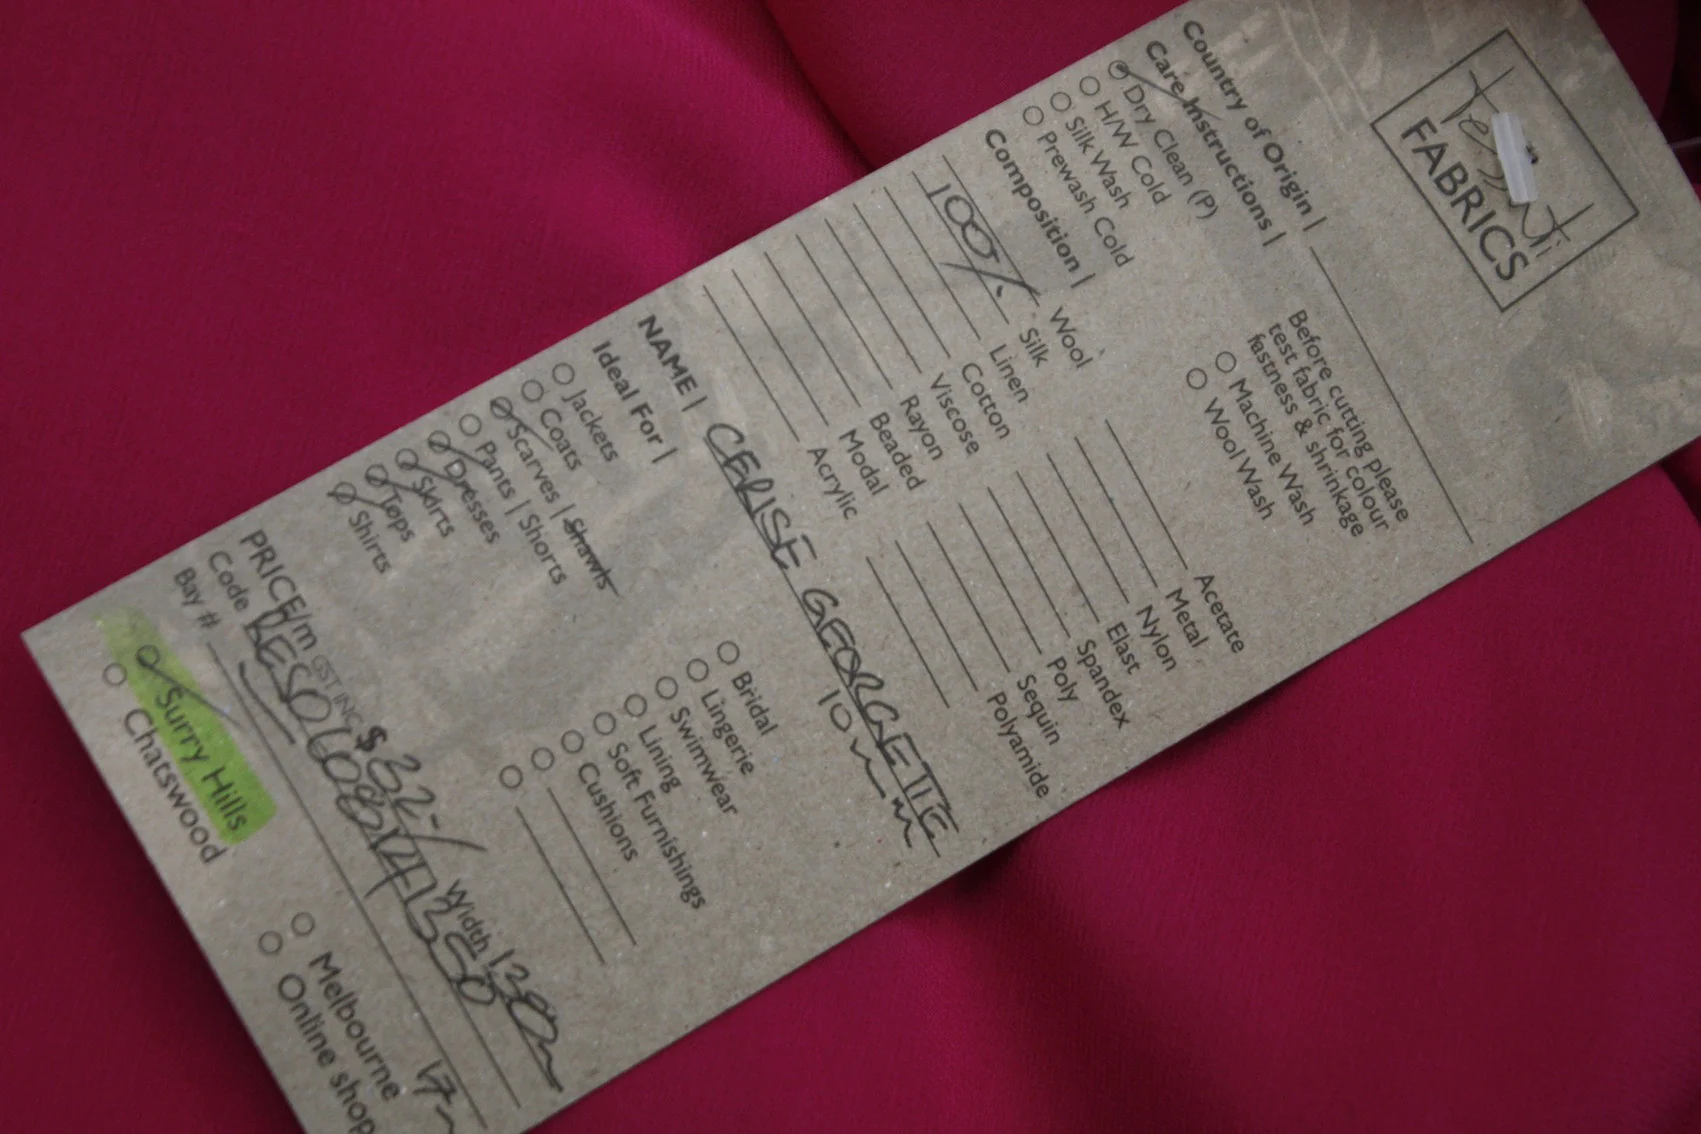 Tessuti
FABRICS
Country of Origin |
Care Instructions |
Dry Clean (P)
H/W Cold
Silk Wash
Prewash Cold
Before cutting please
test fabric for colour
fastness & shrinkage
Machine Wash
Wool Wash
Composition |
Wool
100% Silk
Linen
Cotton
Viscose
Rayon
Beaded
Modal
Acrylic
Acetate
Metal
Nylon
Elast
Spandex
Poly
Sequin
Polyamide
NAME | CERISE GEORGETTE
10mm
Ideal For |
Jackets
Coats
Scarves | Shawls
Pants | Shorts
Dresses
Skirts
Tops
Shirts
Bridal
Lingerie
Swimwear
Lining
Soft Furnishings
Cushions
PRICE/m GST INC $ 32-/ Width 138cm
Code
Bay #
Surry Hills
Chatswood
Melbourne
Online shop